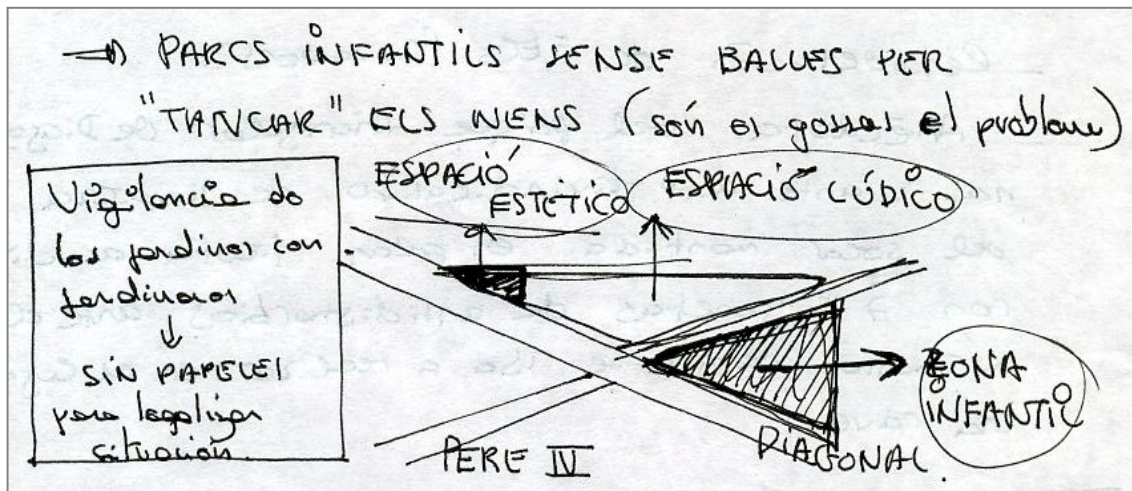 → PARCS INFANTILS SENSE BALLES PER
"TANCAR" ELS NENS (són els gossos el problema)
Vigilancia de
los jardines con
jardineros
↓
SIN PAPELES
para legalizar
situación.
ESPACIO
ESTÉTICO
ESPACIO LÚDICO
ZONA
INFANTIL
PERE IV
DIAGONAL.